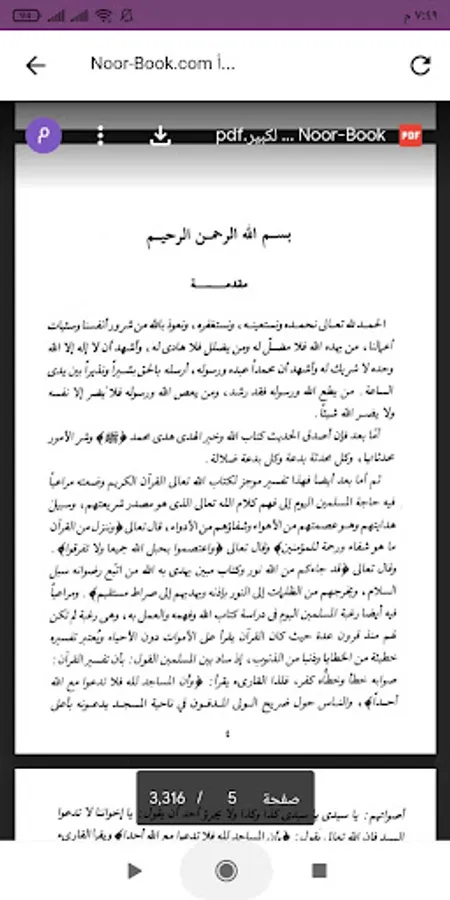 ٧:٤٩ م
Noor-Book.com أ...
م
Noor-Book ... لكبير.pdf
PDF
بسم الله الرحمن الرحيم
مقدمـــــة
الحمد لله تعالى نحمده ونستعينه، ونستغفره، ونعوذ بالله من شرور أنفسنا وسيئات
أعمالنا، من يهده الله فلا مضلّ له ومن يضلل فلا هادى له، وأشهد أن لا إله إلا الله
وحده لا شريك له وأشهد أن محمداً عبده ورسوله، أرسله بالحق بشيراً ونذيراً بين يدى
الساعة. من يطع الله ورسوله فقد رشد، ومن يعص الله ورسوله فلا يضر إلا نفسه
ولا يضر الله شيئاً.
أمّا بعد فإن أصدق الحديث كتاب الله وخير الهدى هدى محمد ﴿ﷺ﴾ وشر الأمور
محدثاتها، وكل محدثة بدعة وكل بدعة ضلالة.
ثم أما بعد أيضا فهذا تفسير موجز لكتاب الله تعالى القرآن الكريم وضعته مراعياً
فيه حاجة المسلمين اليوم إلى فهم كلام الله تعالى الذى هو مصدر شريعتهم، وسبيل
هدايتهم وهو عصمتهم من الأهواء وشفاؤهم من الأدواء، قال تعالى ﴿وننزل من القرآن
ما هو شفاء ورحمة للمؤمنين﴾ وقال تعالى ﴿واعتصموا بحبل الله جميعا ولا تفرقوا﴾.
وقال تعالى ﴿قد جاءكم من الله نور وكتاب مبين يهدى به الله من اتبع رضوانه سبل
السلام، ويخرجهم من الظلمات إلى النور بإذنه ويهديهم إلى صراط مستقيم﴾. ومراعياً
فيه أيضا رغبة المسلمين اليوم في دراسة كتاب الله وفهمه والعمل به، وهى رغبة لم تكن
لهم منذ قرون عدة حيث كان القرآن يقرأ على الأموات دون الأحياء ويُعتبر تفسيره
خطيئة من الخطايا وذنبا من الذنوب، إذ ساد بين المسلمين القول: بأن تفسير القرآن:
صوابه خطأ وخطأه كفر، فلذا القارىء يقرأ: ﴿وأن المساجد لله فلا تدعوا مع الله
أحداً﴾، والناس حول ضريح الولى المدفون في ناحية المسجد يدعونه بأعلى
٤
صفحة 5 / 3,316
أصواتهم: يا سيدى يا سيدى كذا وكذا ولا يجرؤ أحد أن يقول: يا إخواننا لا تدعوا
السيد فإن الله تعالى يقول: ﴿وأن المساجد لله فلا تدعوا مع الله أحدا﴾ ويقرأ القارىء